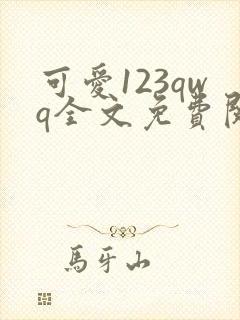 可愛123qw
q全文免費閱
馬牙山